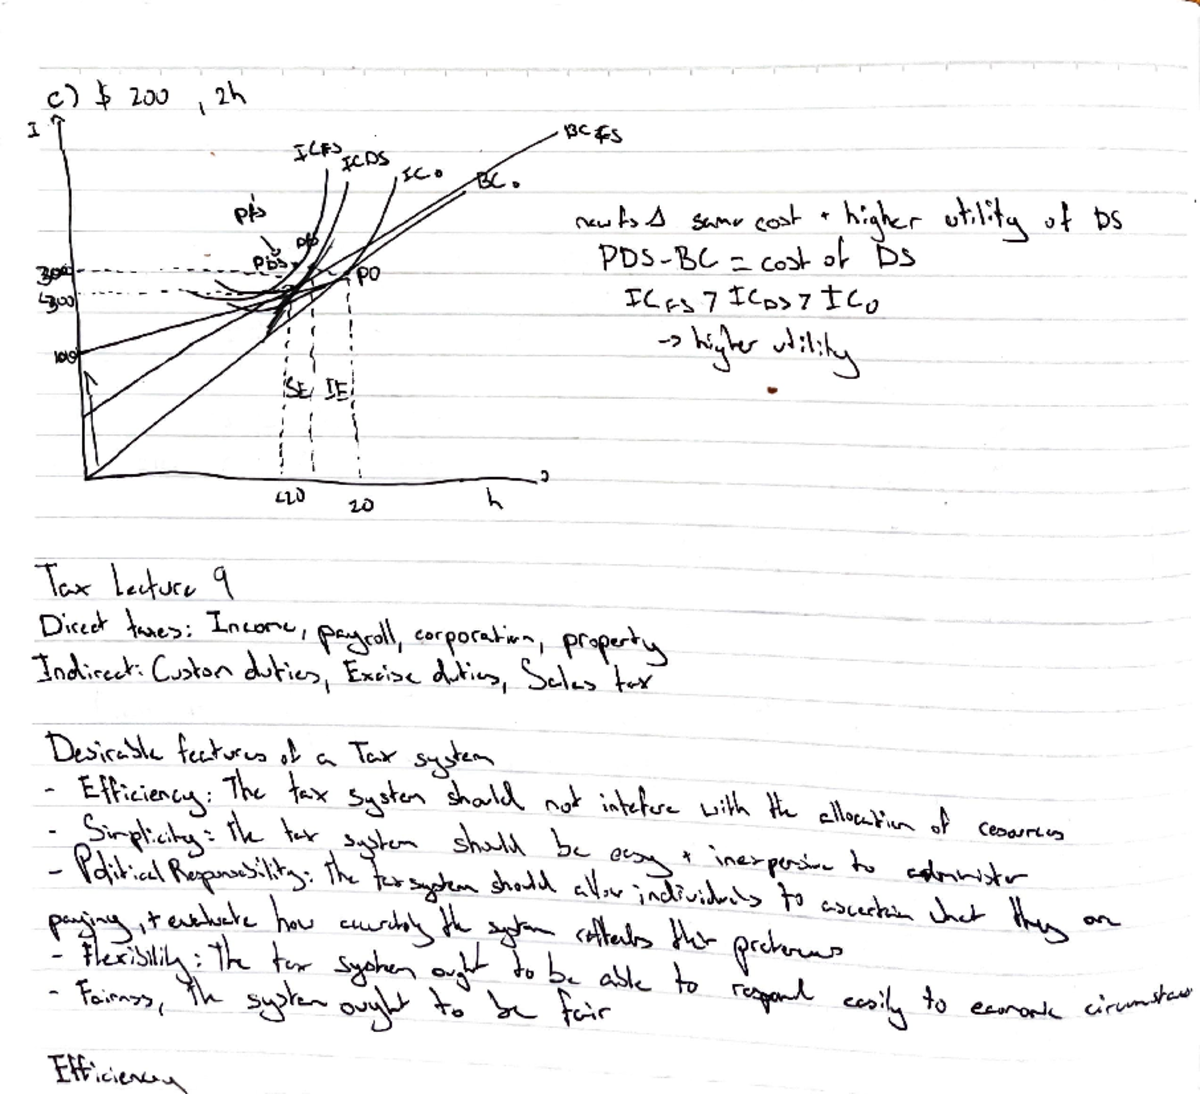 c) $ 200 , 2h
I
ICFS ICDS IC0 BC FS
BC0
Pfs
PDS
PO
300
<300
100
SE IE
<20 20 h
new fs Δ same cost + higher utility of DS
PDS-BC = cost of DS
ICFS > ICDS > IC0
→ higher utility
Tax Lecture 9
Direct taxes: Income, payroll, corporation, property
Indirect: Custom duties, Excise duties, Sales tax
Desirable features of a Tax system
- Efficiency: The tax system should not intefere with the allocation of resources
- Simplicity: The tax system should be easy + inexpensive to administer
- Political Responsibility: The tax system should allow individuals to ascertain what they are
paying, + evaluate how accurately the system reflects their preferences
- Flexibility: The tax system ought to be able to respond easily to economic circumstances
- Fairness, The system ought to be fair
Efficiency